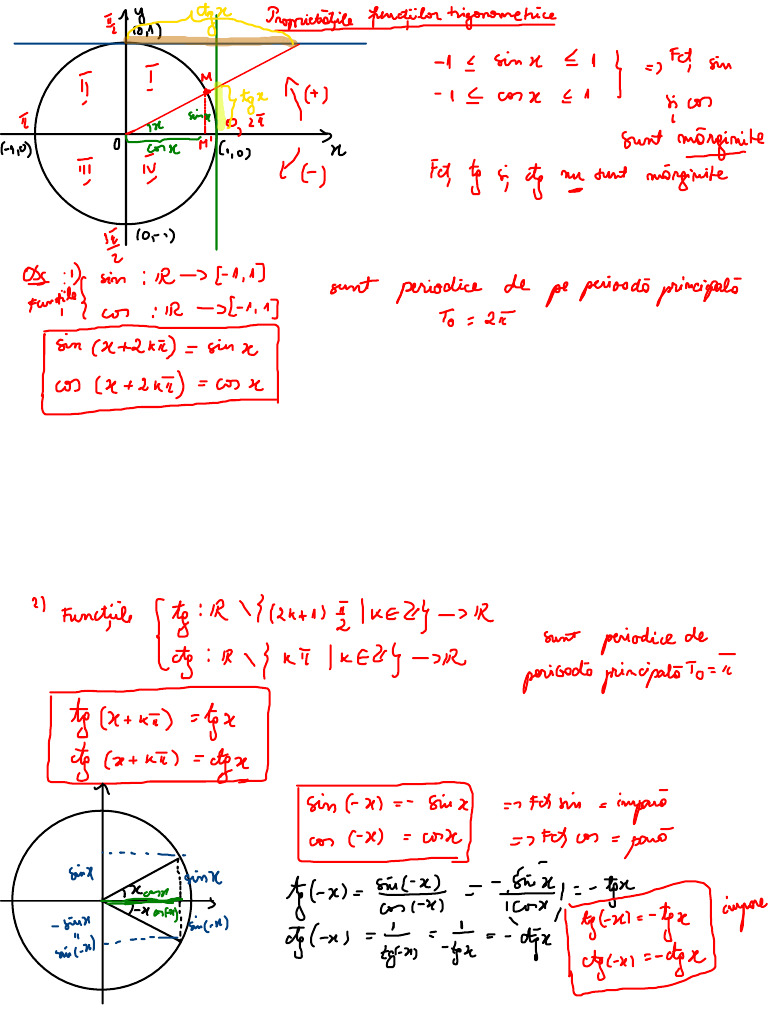 Proprietățile funcțiilor trigonometrice
π/2
y
(0,1)
ctg x
II
I
M
tg x
(+)
π
(-1,0)
0
x
sin x
cos x
M'
0, 2π
(1,0)
x
III
IV
(-)
3π/2
(0,-1)
-1 ≤ sin x ≤ 1
-1 ≤ cos x ≤ 1
=> Fct, sin
și cos
sunt mărginite
Fct, tg și ctg nu sunt mărginite
Obs : 1)
Funcțiile
sin : ℝ → [-1,1]
cos : ℝ → [-1,1]
sunt periodice de pe perioadă principală
T₀ = 2π
sin (x+2kπ) = sin x
cos (x+2kπ) = cos x
2) Funcțiile
tg : ℝ \ { (2k+1) π/2 | k∈ℤ } → ℝ
ctg : ℝ \ { kπ | k∈ℤ } → ℝ
sunt periodice de
perioadă principală T₀ = π
tg (x+kπ) = tg x
ctg (x+kπ) = ctg x
sin (-x) = - sin x => Fct sin = impară
cos (-x) = cos x => Fct cos = pară
sin x
sin x
x
cos x
-x
cos(-x)
- sin x
=
sin(-x)
sin(-x)
tg(-x) = sin(-x)/cos(-x) = - sin x/cos x = - tg x
ctg(-x) = 1/tg(-x) = 1/-tg x = - ctg x
tg(-x) = -tg x
ctg(-x) = -ctg x
impare